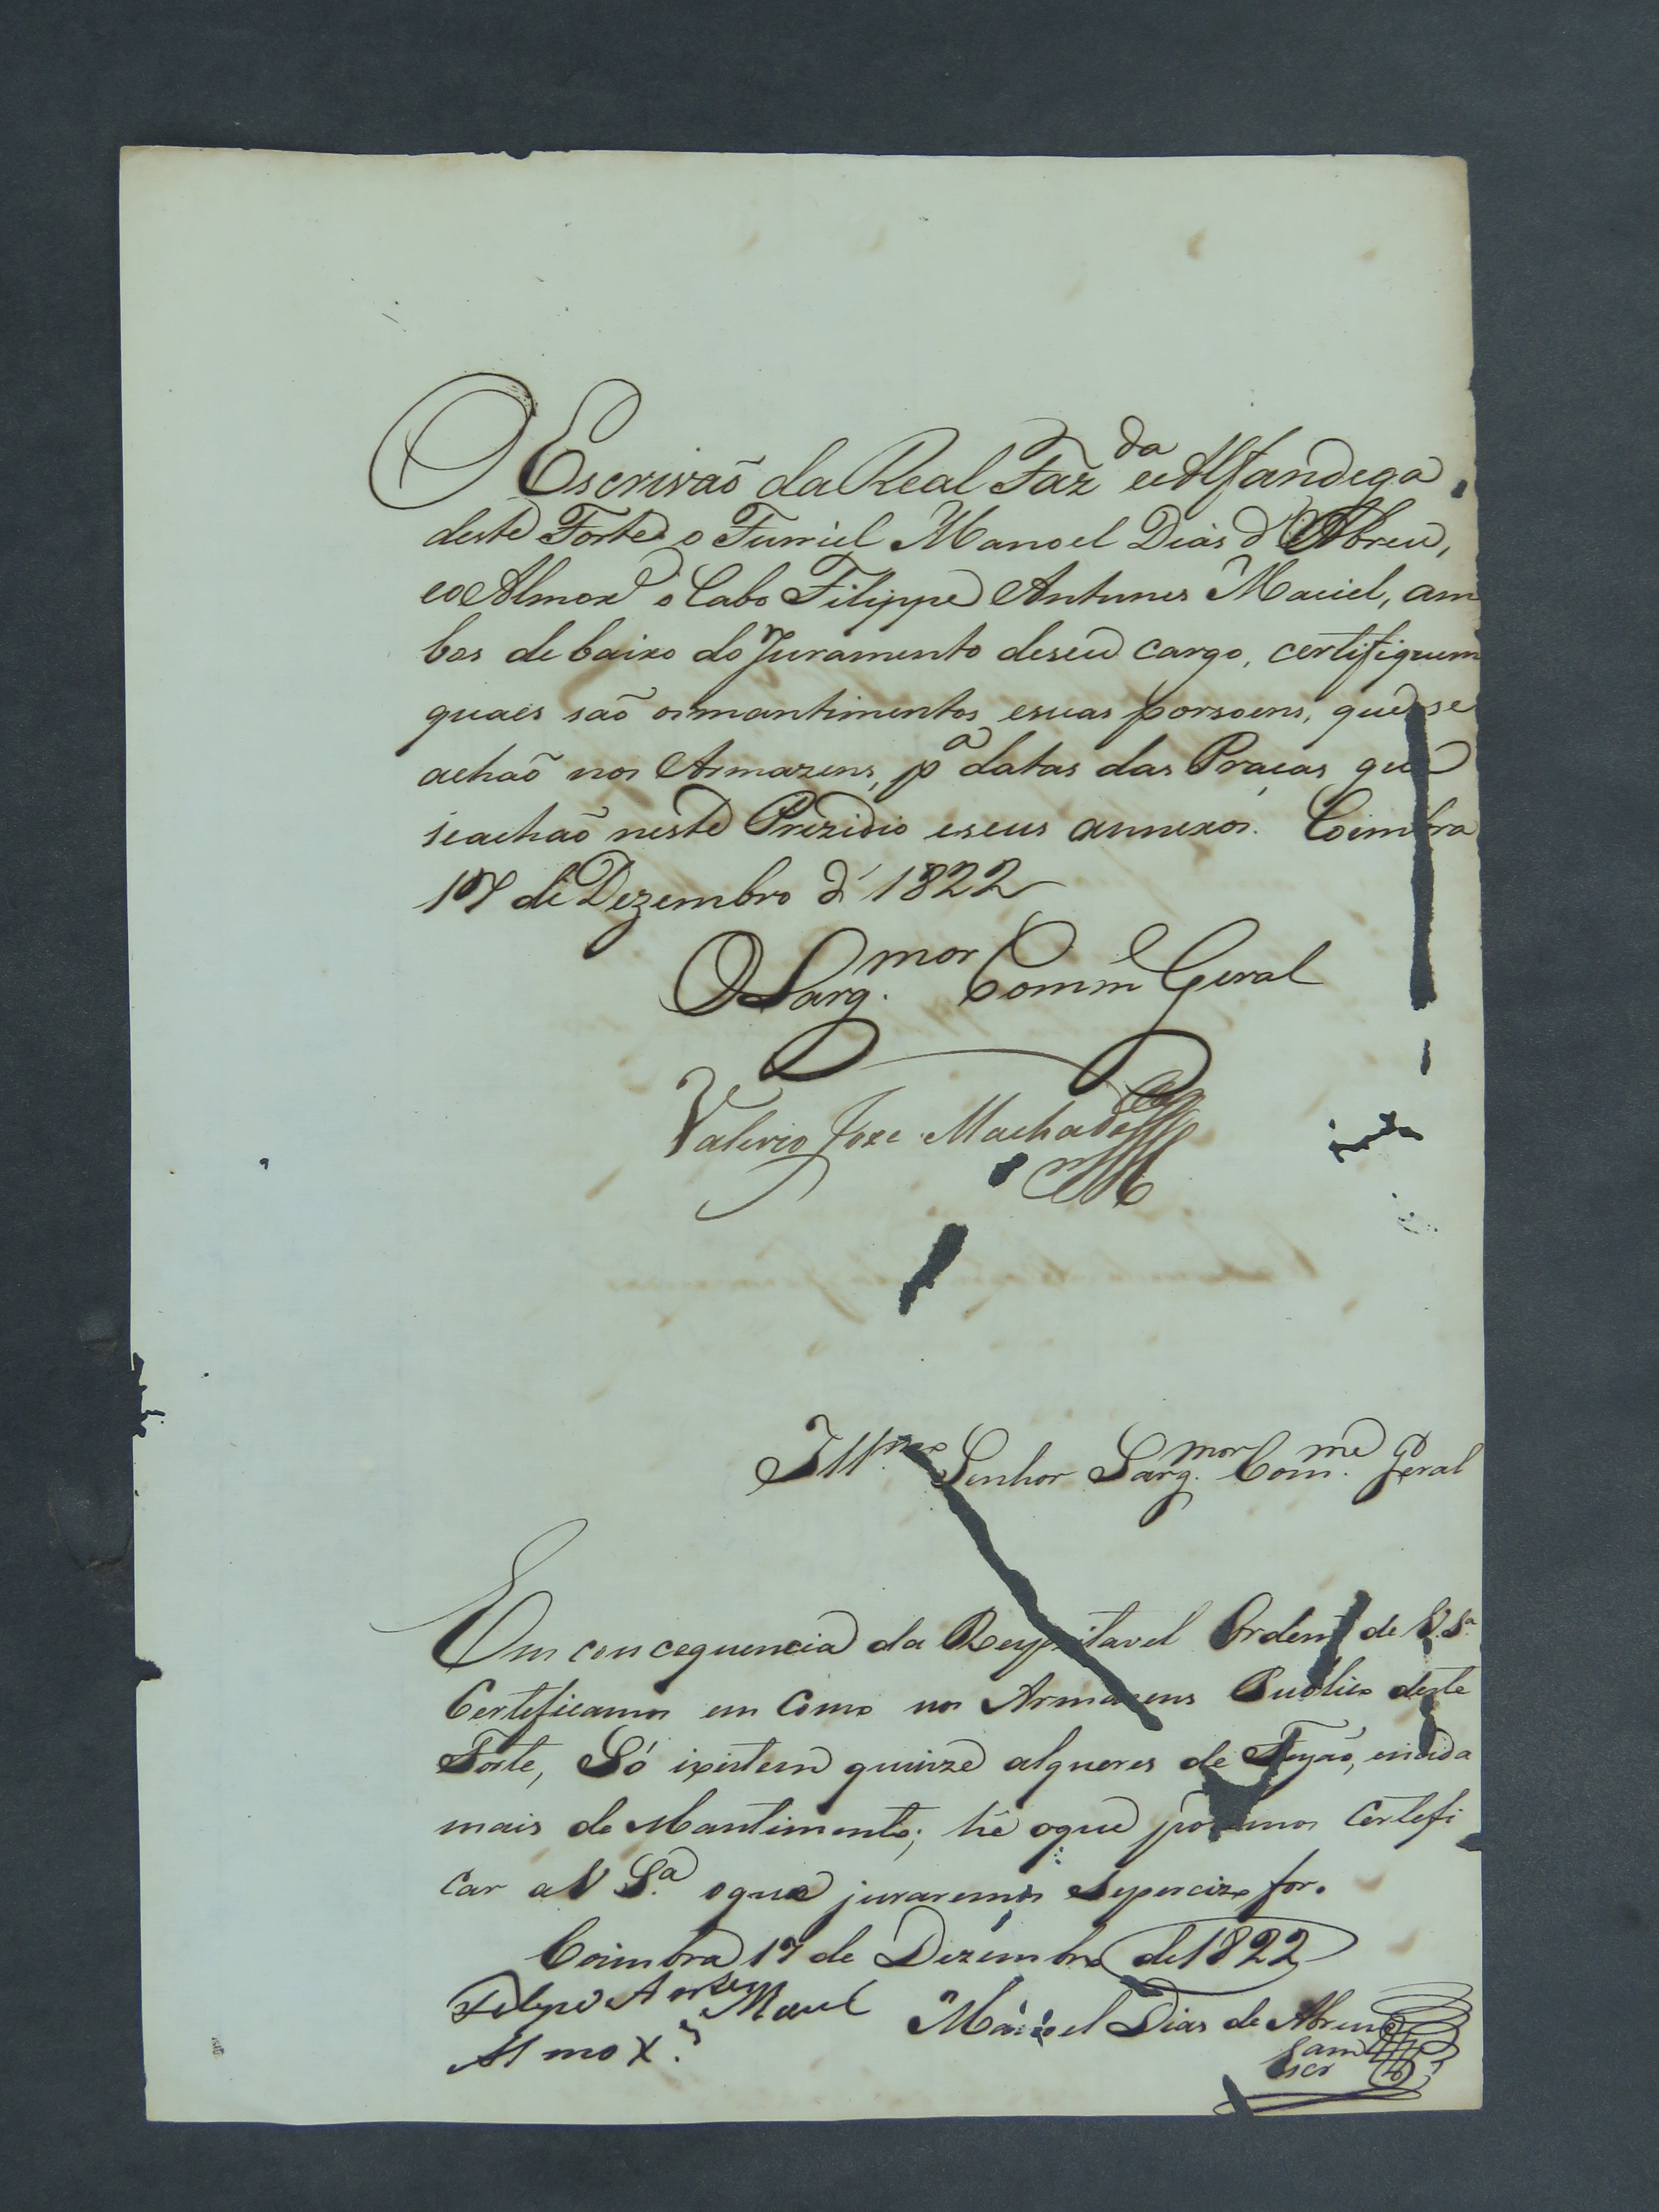 O Escrivaõ da Real Faz.da e Alfandega
deste Forte o Furriel Manoel Dias d'Abreu,
eo Almox.e o Cabo Filippe Antunes Maciel, am
bos de baixo do Juramento deseu cargo, certifiquem
quaes saõ os mantimentos, esuas porsoens, que se
achaõ nos Armazens, p.a datas das Praças que
seachaõ neste Prezidio eseus annexos. Coimbra
17 de Dezembro d' 1822
O Sarg. mor Comm.e Geral
Valerio Joze Machado
Ill.mo Senhor Sarg. mor Com.me Geral
Em concequencia da Respeitavel Ordem de V.S.a
Certeficamos em como nos Armazens Publico deste
Forte, Só existem quinze alqueres de Feyaõ, enada
mais de Mantimento; hé oque podemos Certefi
car a V S.a oque juraremos Sepercizo for.
Coimbra 17 de Dezembro de 1822
Felype Antes Maciel Manoel Dias de Abreu
Almox.e